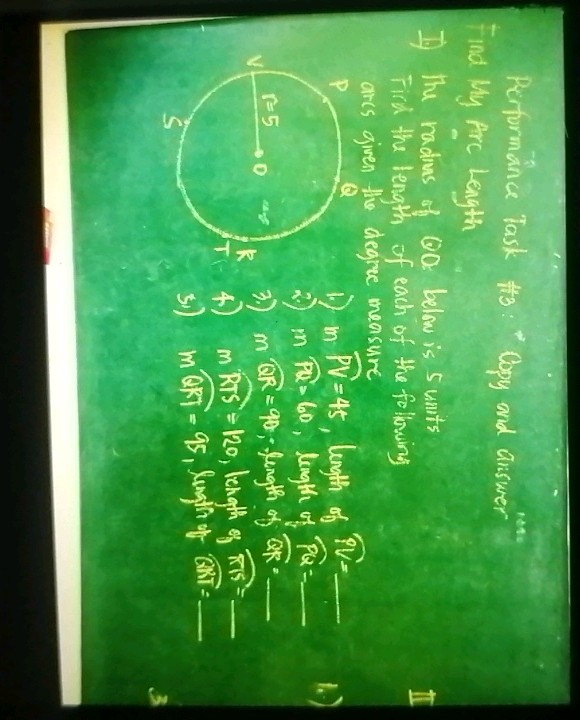 Performance Task #3: Copy and answer
Find My Arc Length
I) The radius of ⊙O below is 5 units
Find the length of each of the following
arcs given the degree measure
P
Q
V
r=5
O
S
R
T
1.) m PV = 45, length of PV = ___
2.) m PQ = 60, length of PQ = ___
3.) m QR = 90, length of QR = ___
4.) m RTS = 120, length of RTS = ___
5.) m QRT = 95, length of QRT = ___
II
1.)
3